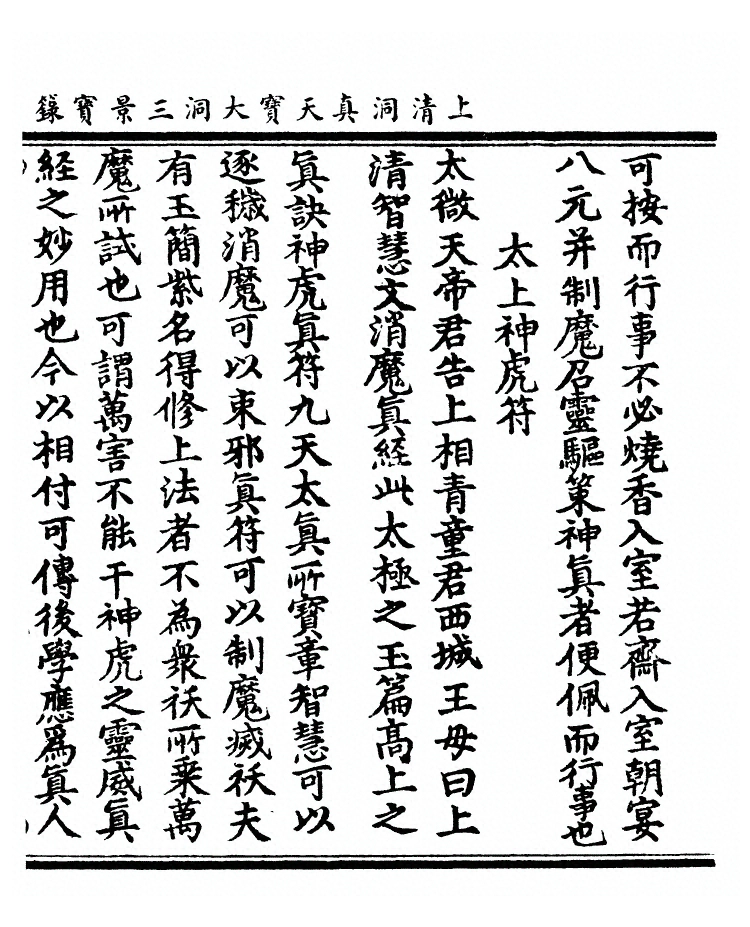 上清洞真天寶大洞三景寶籙
可按而行事不必燒香入室若齋入室朝宴
八元并制魔召靈驅策神眞者便佩而行事也
太上神虎符
太微天帝君告上相青童君西城王母曰上
清智慧文消魔眞經此太極之玉篇高上之
眞訣神虎眞符九天太眞所寶章智慧可以
逐穢消魔可以束邪眞符可以制魔滅祅夫
有玉簡紫名得修上法者不為衆祅所乗萬
魔所試也可謂萬害不能干神虎之靈威眞
経之妙用也今以相付可傳後學應爲眞人